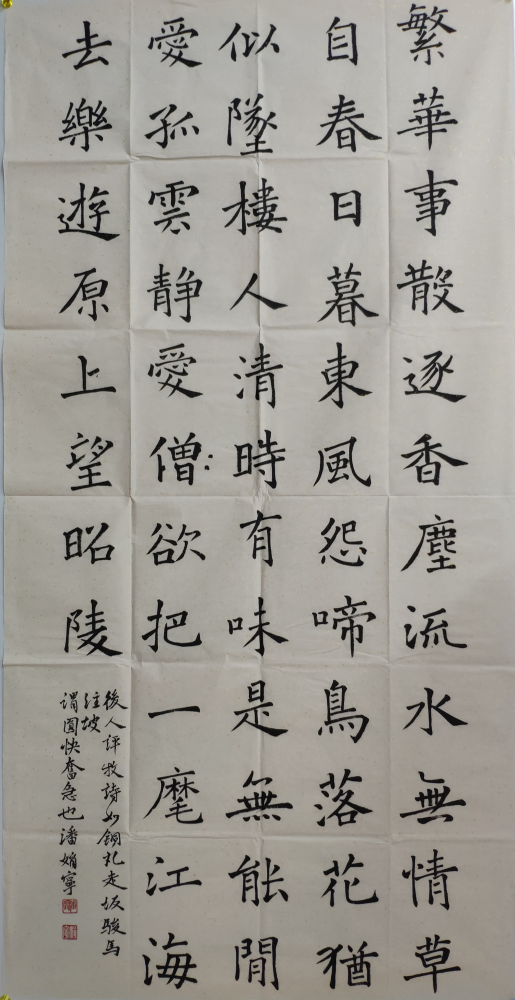 繁華事散逐香塵流水無情草
自春日暮東風怨啼鳥落花猶
似墜樓人清時有味是無能閒
愛孤雲靜愛僧欲把一麾江海
去樂遊原上望昭陵
後人評牧詩如銅丸走坂駿馬
注坡
謂圓快奮急也潘娟寧